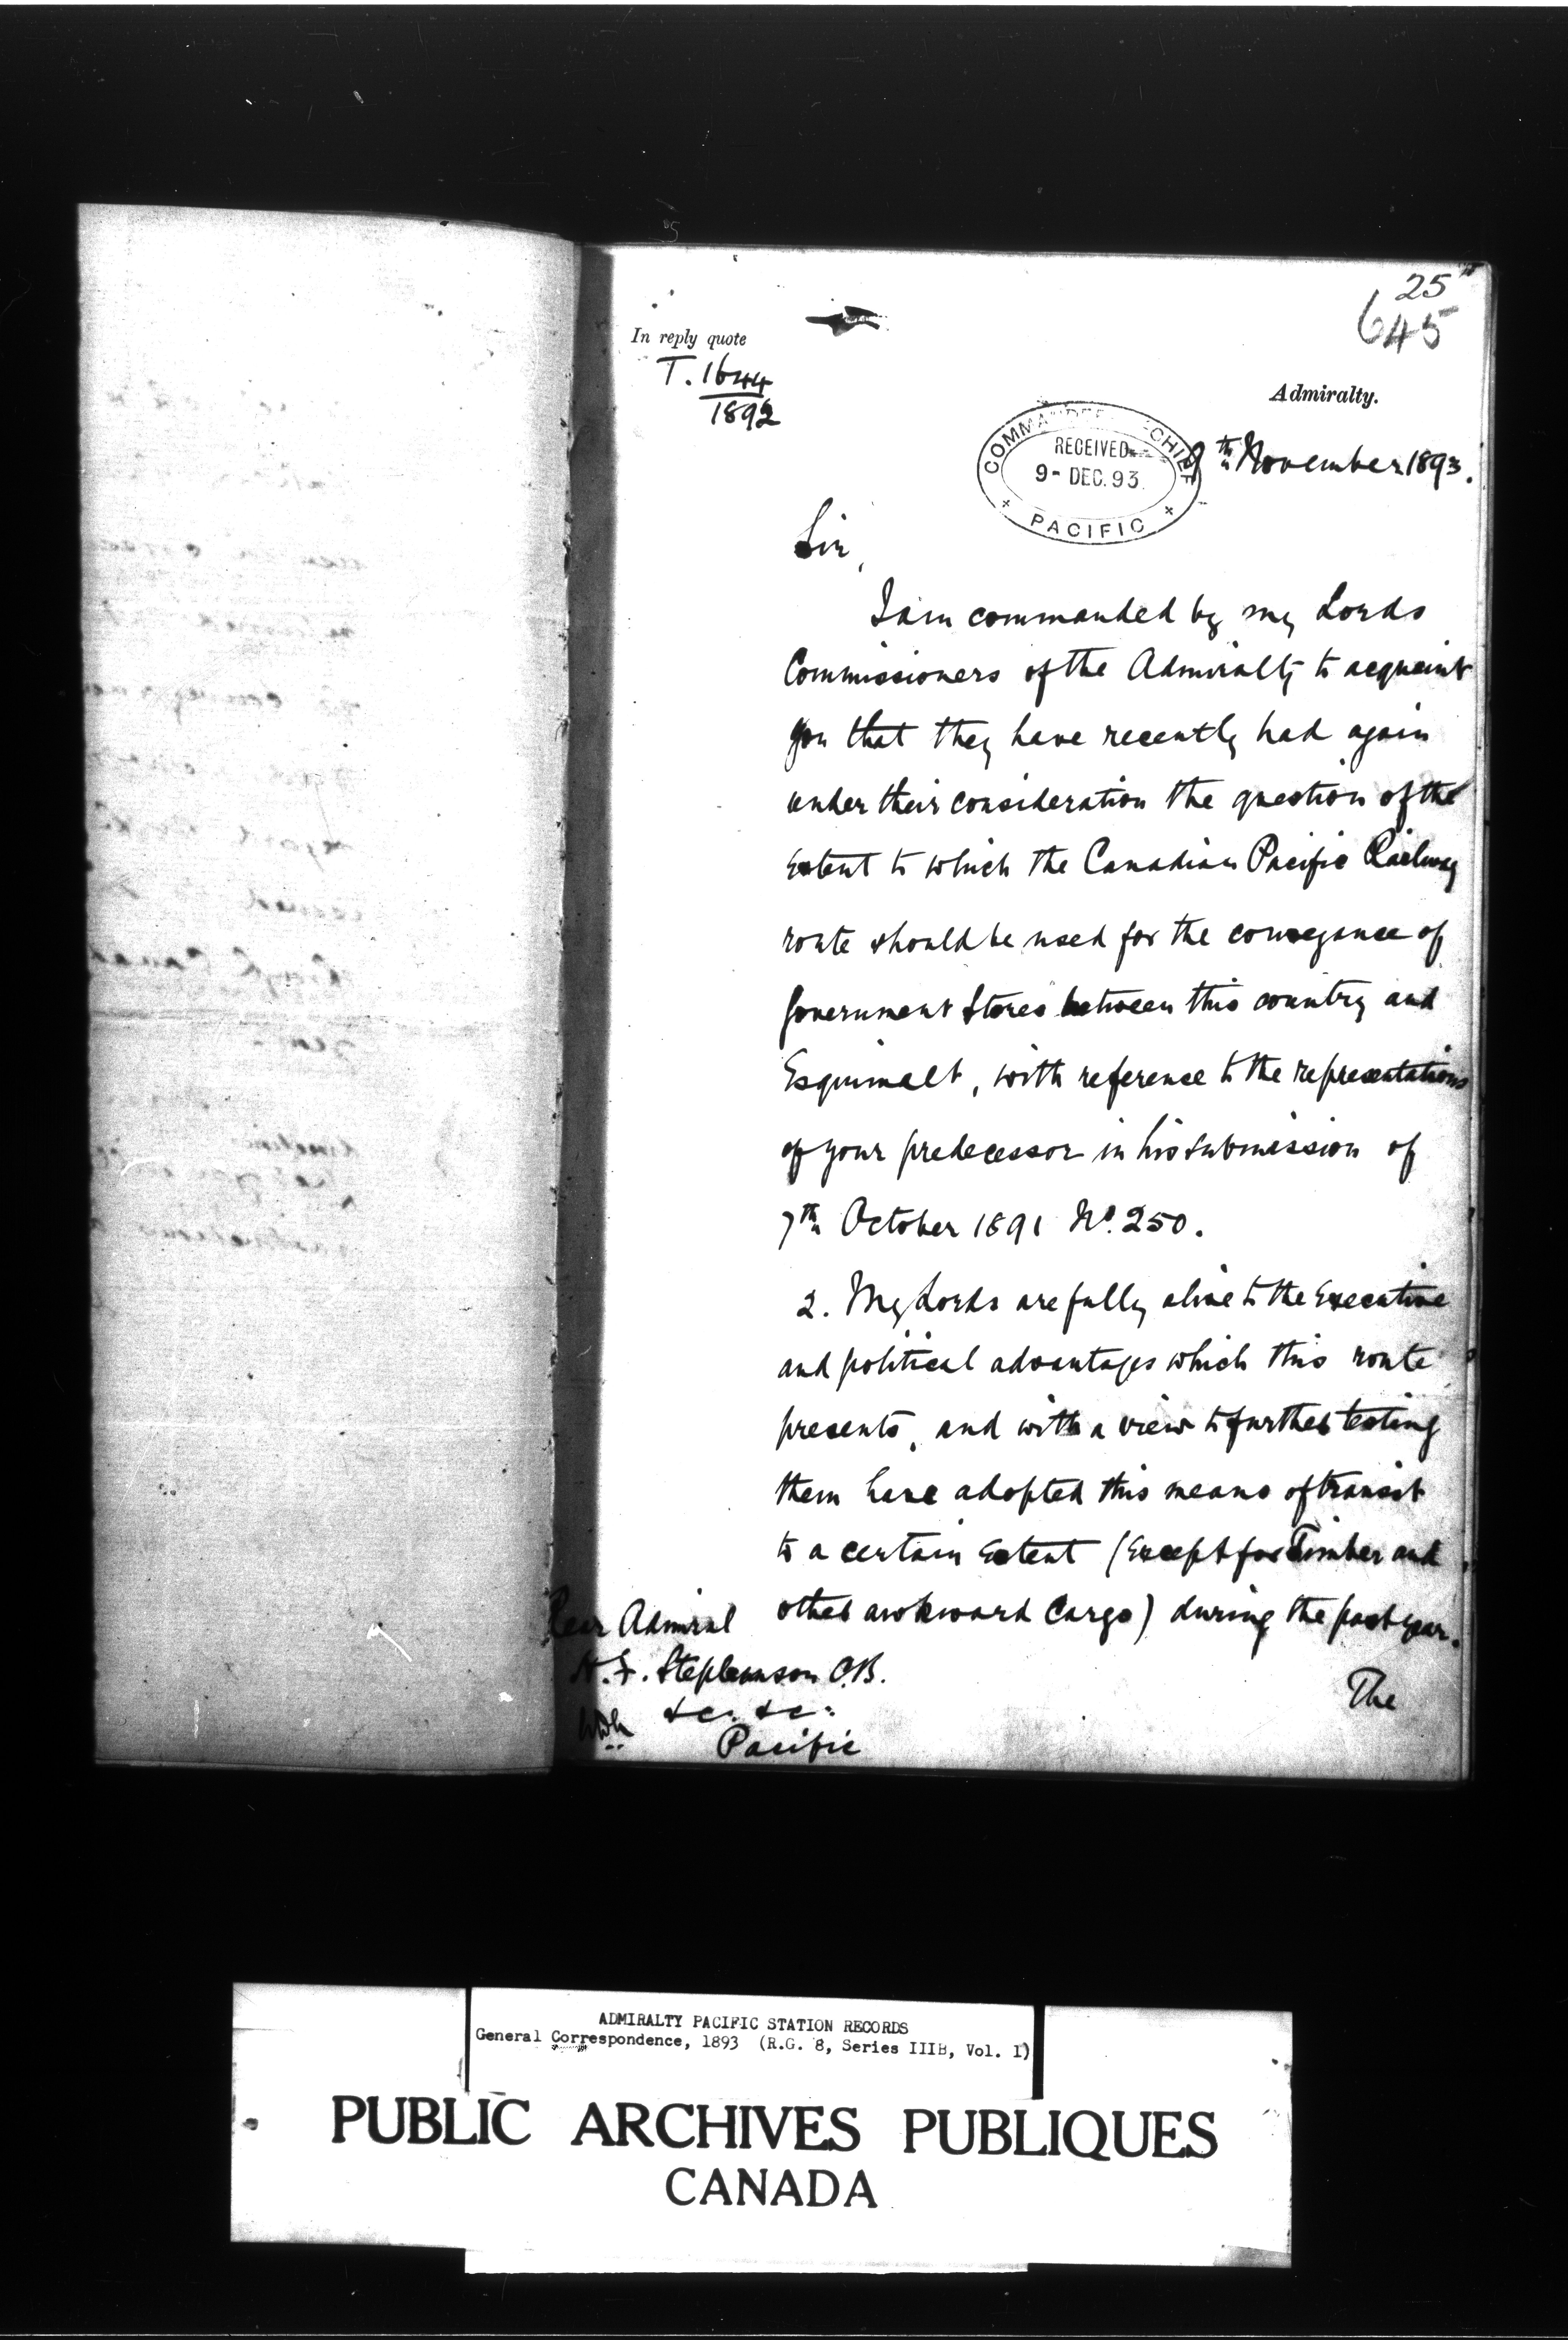 25
645
In reply quote
T. 1644
1892
Admiralty.
COMMANDER CHIEF
RECEIVED
9- DEC. 93.
PACIFIC
th November 1893.
Sir,
I am commanded by my Lords
Commissioners of the Admiralty to acquaint
you that they have recently had again
under their consideration the question of the
extent to which the Canadian Pacific Railway
route should be used for the conveyance of
Government Stores between this country and
Esquimalt, with reference to the representations
of your predecessor in his submission of
7th October 1891 No. 250.
2. My Lords are fully alive to the Executive
and political advantages which this route
presents, and with a view to further testing
them have adopted this means of transit
to a certain extent (except for Timber and
other awkward Cargo) during the past year.
Rear Admiral
H. F. Stephenson C.B.
&c. &c:
Pacific
The
ADMIRALTY PACIFIC STATION RECORDS
General Correspondence, 1893 (R.G. 8, Series IIIB, Vol. 1)
PUBLIC ARCHIVES PUBLIQUES
CANADA